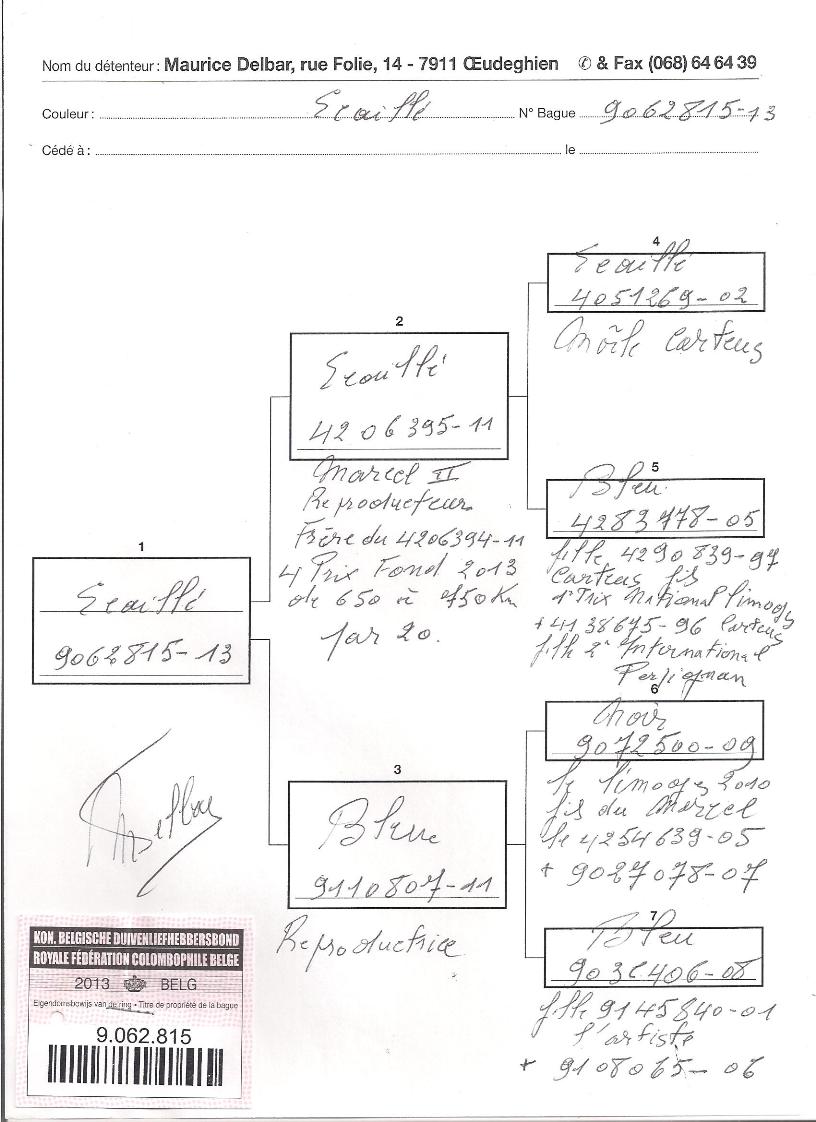 Nom du détenteur : Maurice Delbar, rue Folie, 14 - 7911 Œudeghien ✆ & Fax (068) 64 64 39
Couleur : Ecaillé N° Bague 9062815-13
Cédé à : le
4
Ecaillé
4051269-02
Carteus
2
Ecaillé
4206395-11
Marcel II
Reproducteur
Frère du 4206394-11
4 Prix Fond 2013
de 650 à 950 Km
par 20.
5
Bleu
4283778-05
fille 4290839-97
Carteus fils
1er Prix National Limoges
+ 4138675-96 Carteus
fille 2e International
Perpignan
1
Ecaillé
9062815-13
6
Noir
9072500-09
le Limoges 2010
fils du Marcel
le 4254639-05
+ 9027078-07
3
Bleue
9110807-11
Reproductrice
7
Bleu
406-08
fille 9145840-01
l'artiste
+ 9108065-06
Delbar
KON. BELGISCHE DUIVENLIEFHEBBERSBOND
ROYALE FÉDÉRATION COLOMBOPHILE BELGE
2013 BELG
Eigendomsbewijs van de ring - Titre de propriété de la bague
9.062.815